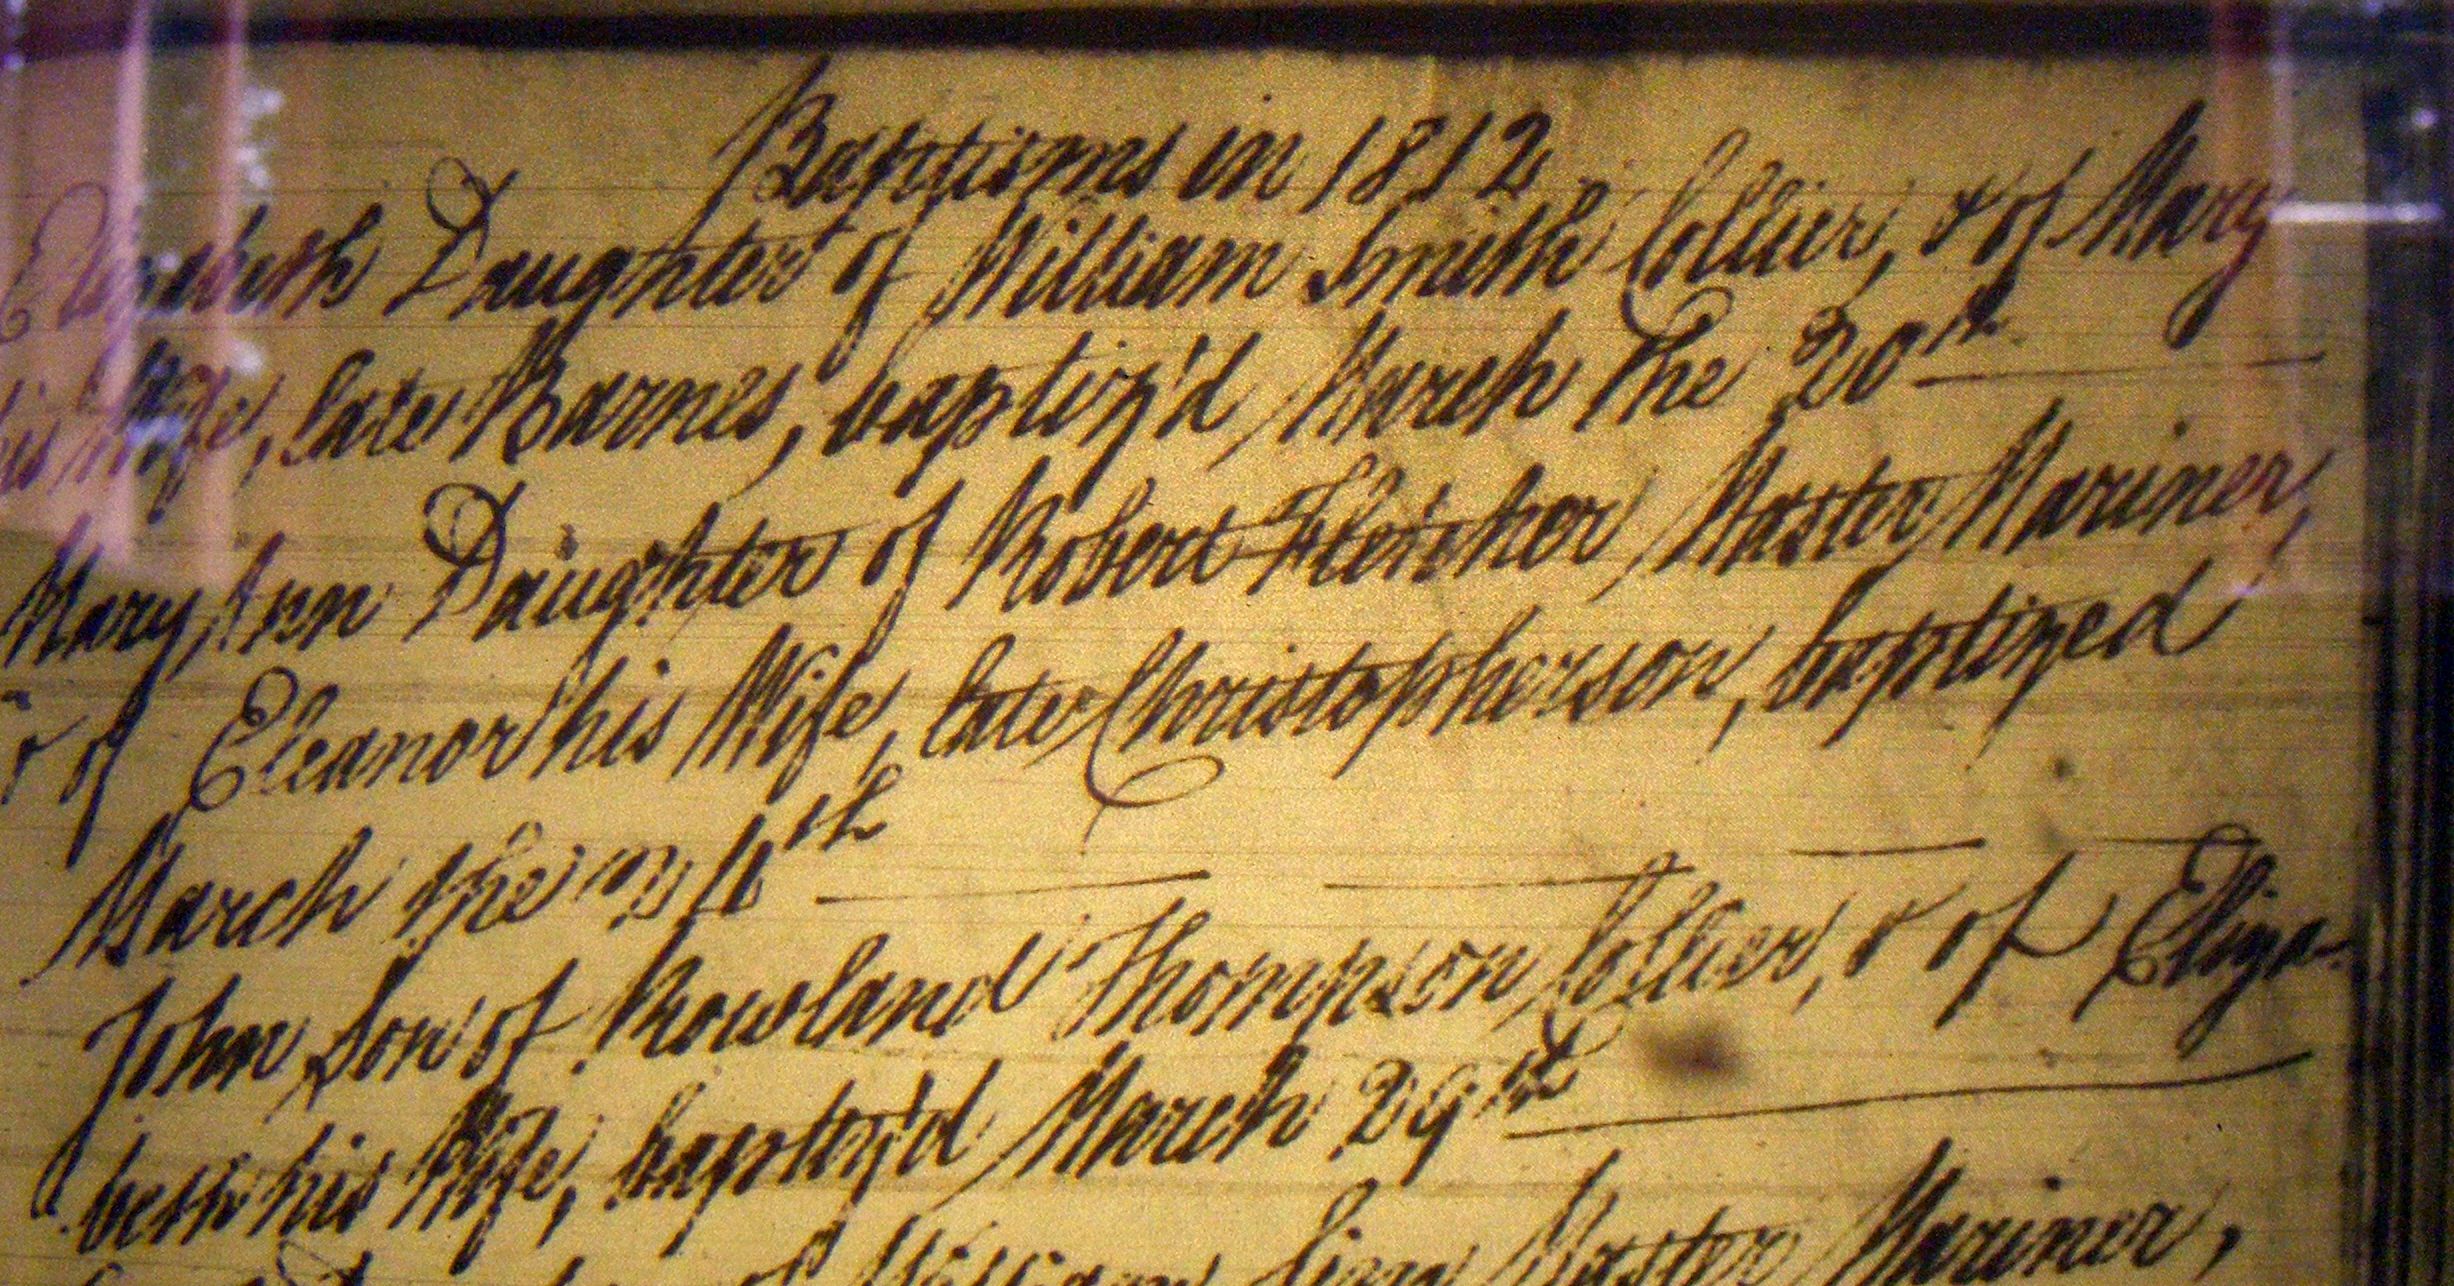 Baptisms in 1812
Elizabeth Daughter of William Smith Collier, & of Mary
his Wife, late Barnes, baptiz'd March the 20th
Mary Ann Daughter of Robert Fletcher Master Mariner,
& of Eleanor his Wife, late Christopherson, baptized
March the 24th
John Son of Rowland Thompson Collier, & of Eliza-
beth his Wife, baptiz'd March 29th
of William Master Mariner,